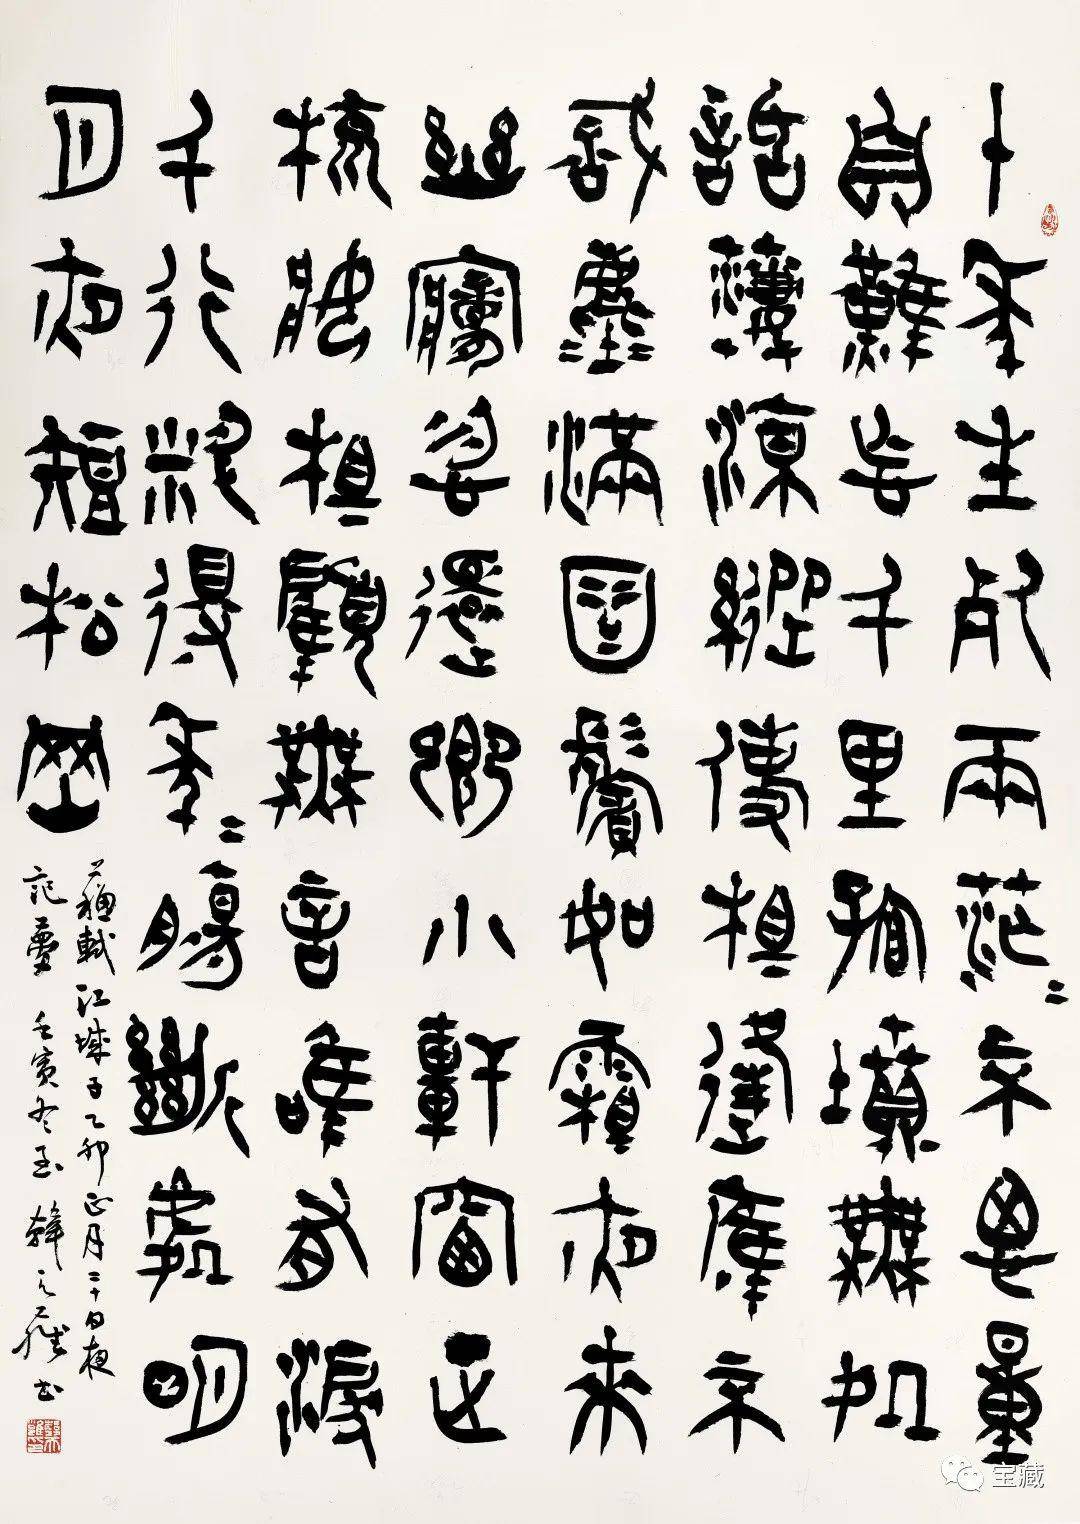 十年生死兩茫〻不思量
自難忘千里孤墳無処
話淒涼縱使相逢應不
識塵滿面鬢如霜夜來
幽夢忽還鄉小軒窗正
梳妝相顧無言唯有淚
千行料得年〻腸斷處明
月夜短松岡
蘇軾江城子乙卯正月二十日夜
記夢 壬寅冬至 韓天雍書
宝藏